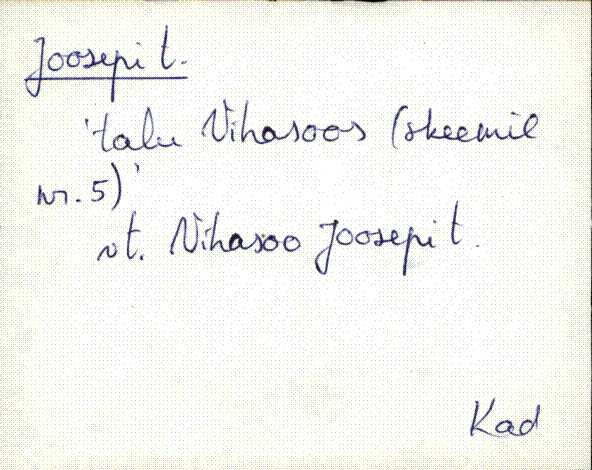 Joosepi t.
'talu Vihasoos (skeemil
nr. 5)'
vt. Vihasoo Joosepi t.
Kad